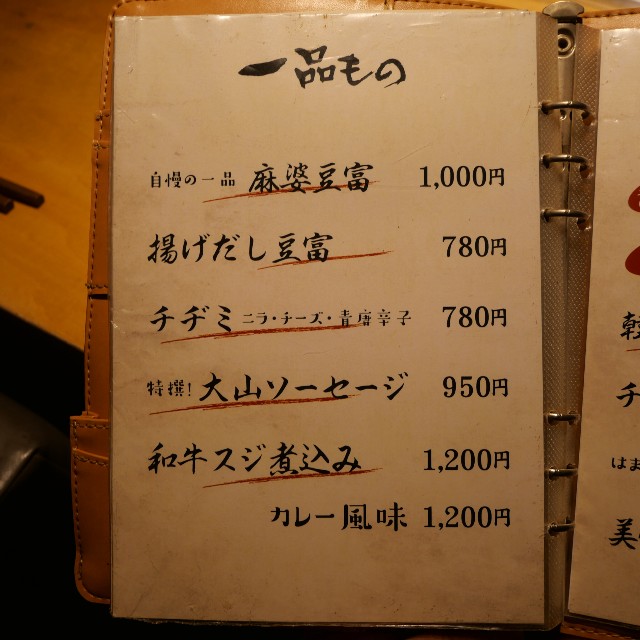 一品もの
自慢の一品 麻婆豆富 1,000円
揚げだし豆富 780円
チヂミ ニラ・チーズ・青唐辛子 780円
特撰! 大山ソーセージ 950円
和牛スジ煮込み 1,200円
カレー風味 1,200円
チ
はま
美